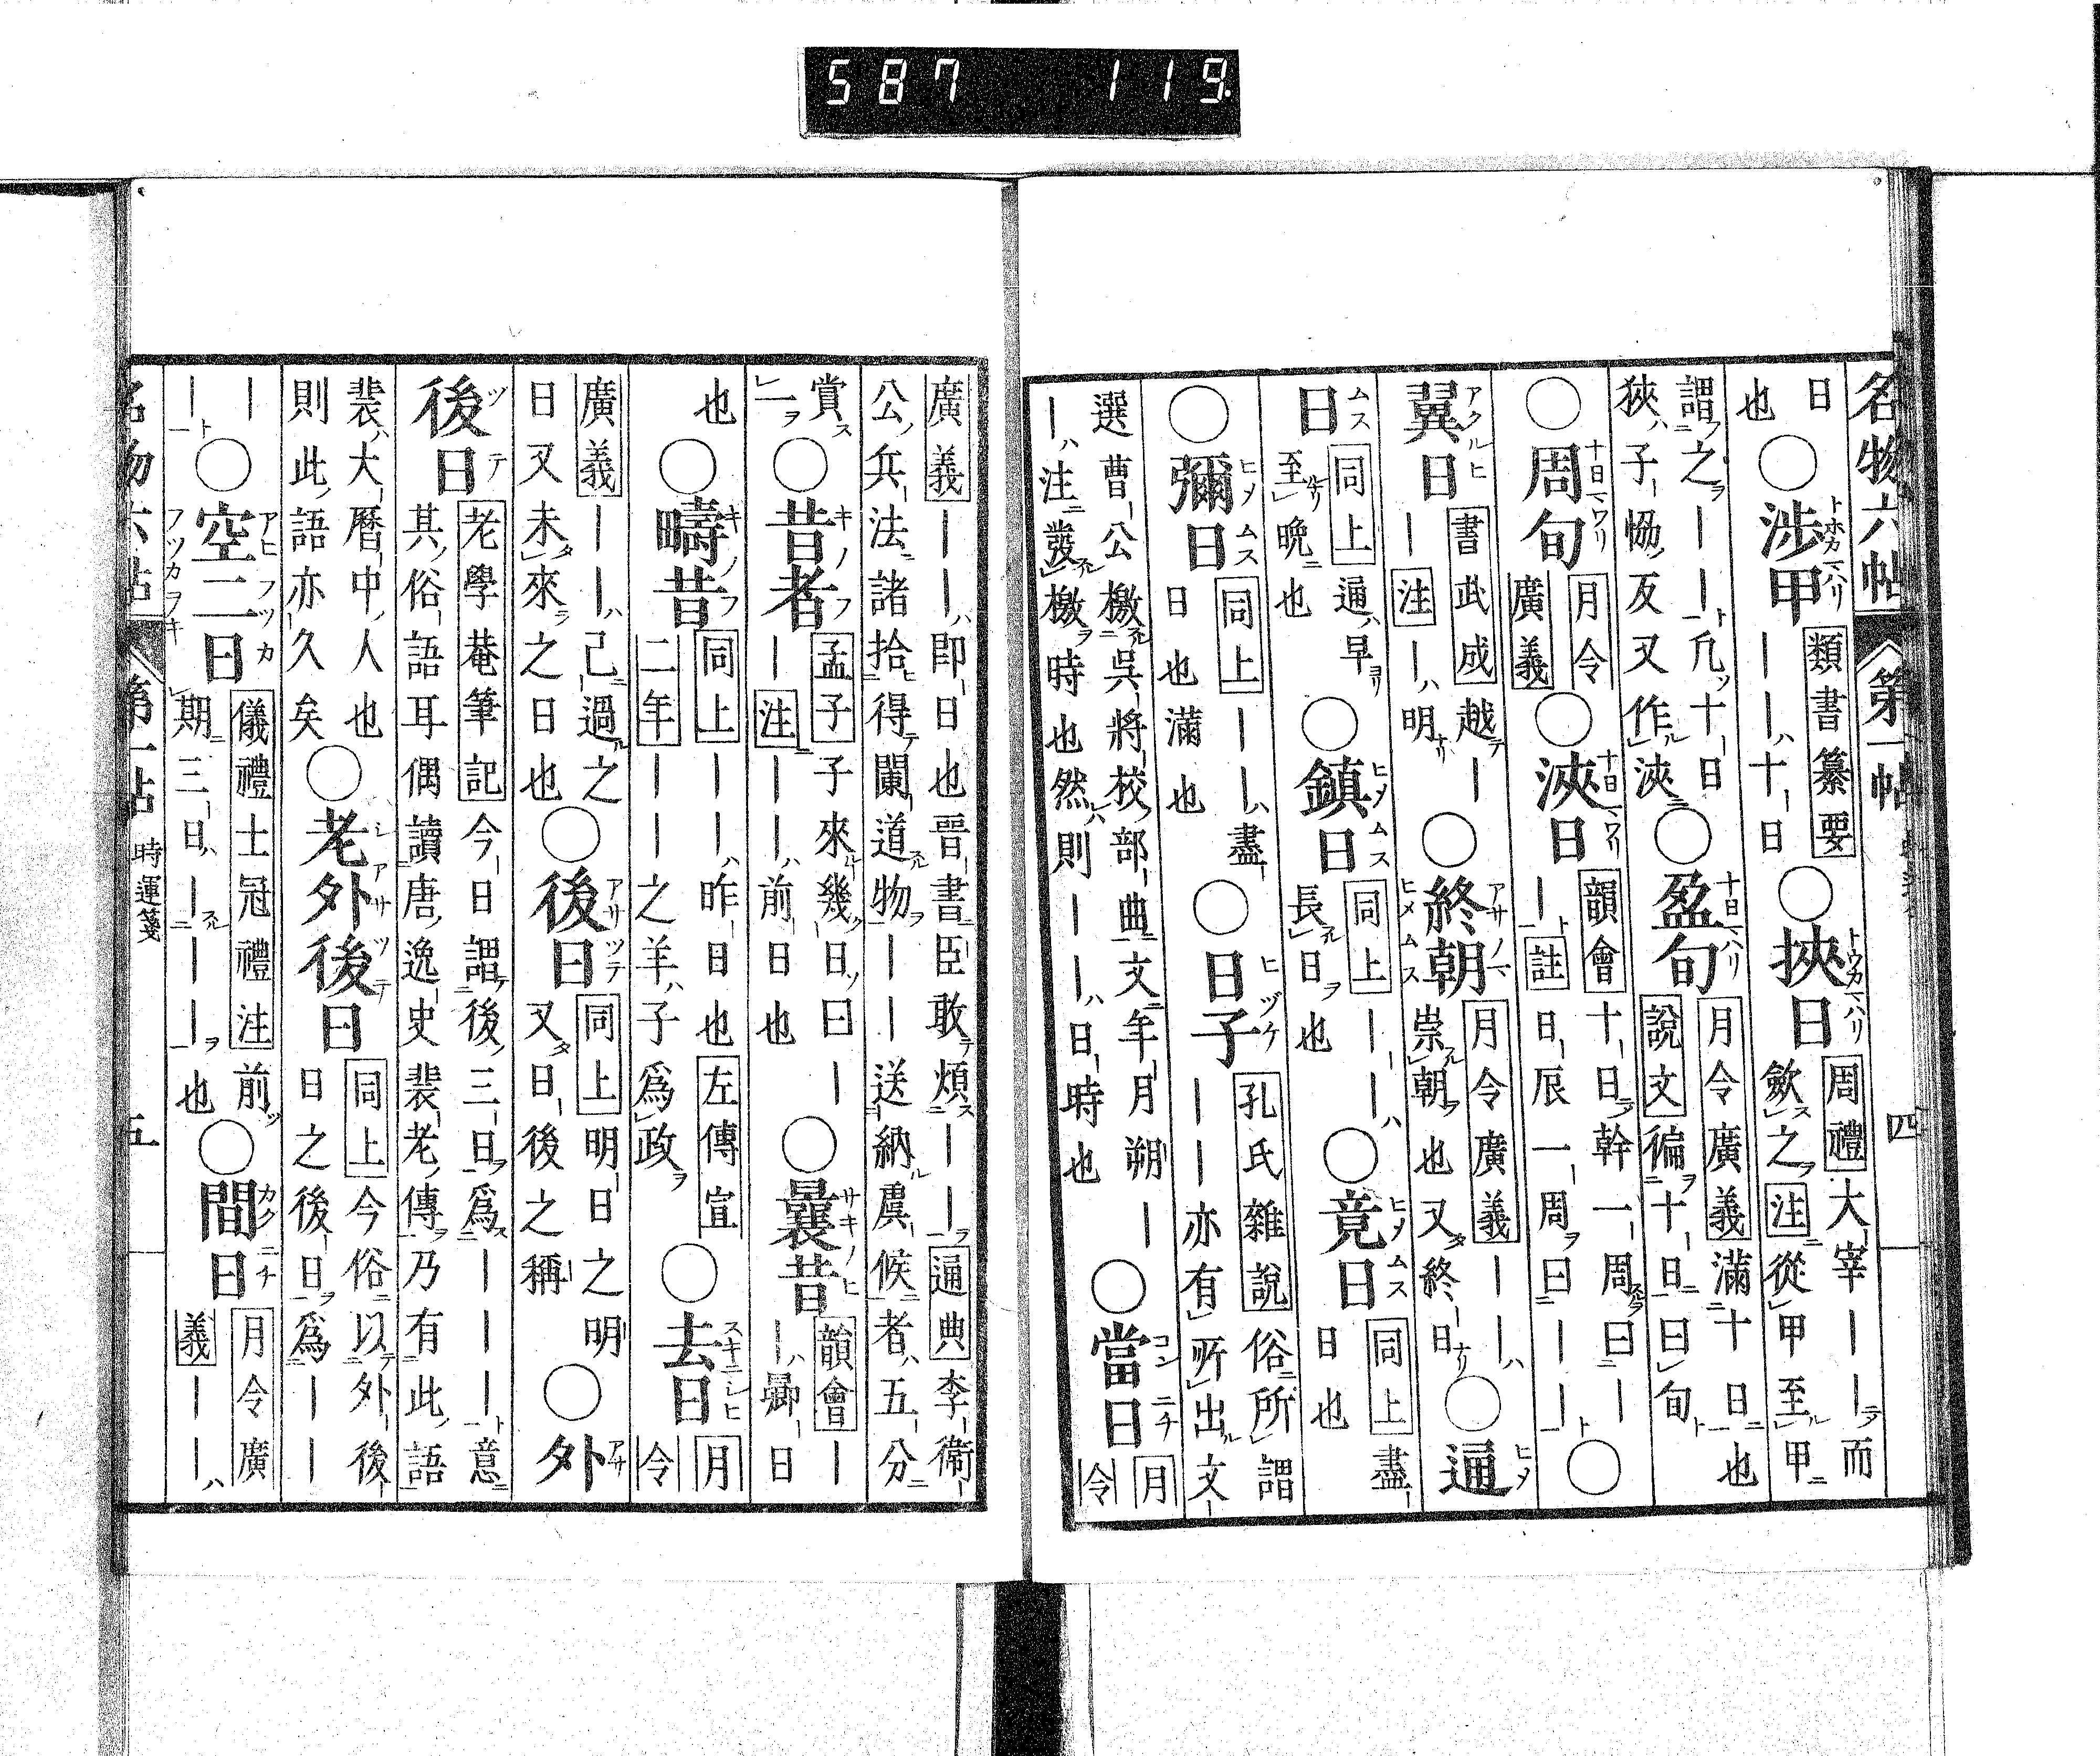 587 119.
名物六帖 第一帖 四
日也○涉甲類書纂要――十日○挾日周禮大宰――而斂之注從甲至甲
謂之――凡十日狹子恊反又作浹○盈旬月令廣義滿十日也說文徧十日曰旬
○周旬月令廣義○浹日韻會十日幹一周曰――註日辰一周曰――○
翼日書武成越――注―明○終朝月令廣義――崇朝也又終日○通
日同上通早至晩也○鎮日同上――長日也○竟日同上盡日也
○彌日同上――盡日也滿也○日子孔氏雜說俗所謂――亦有所出文
選曹公檄吳將校部曲文年月朔――注發檄時也然則――日時也○當日月令
廣義――即日也晉書臣敢煩――通典李衞公兵法諸拾得闌道物――送納虞候者五分
賞一○昔者孟子子來幾日曰――注――前日也○曩昔韻會――曏日
也○疇昔同上――昨日也左傳宣二年――之羊子爲政○去日月令
廣義――已過之日又未來之日也○後日同上明日之明又日後之稱○外
後日老學菴筆記今日謂後三日爲―――意其俗語耳偶讀唐逸史裴老傳乃有此語
裴大曆中人也則此語亦久矣○老外後日同上今俗以外後日之後日爲――
――○空二日儀禮士冠禮注前期三日―――也○間日月令廣義――
名物六帖 第一帖 時運箋 五